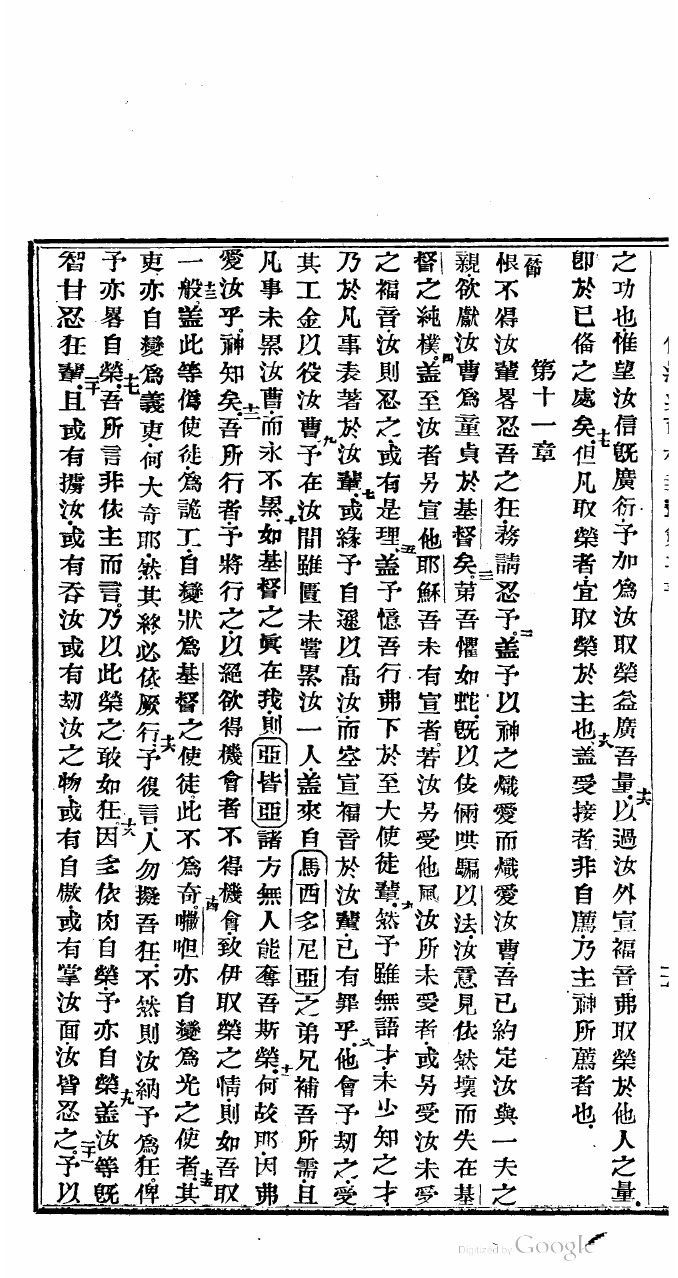 之功也惟望汝信既廣衍予加為汝取榮益廣吾量十六以過汝外宣福音弗取榮於他人之量
卽於已俻之處矣十七但凡取榮者宜取榮於主也十八盖受接者非自薦乃主神所薦者也
第十一章
一節恨不得汝輩畧忍吾之狂務請忍予二盖予以神之熾愛而熾愛汝曹吾已約定汝與一夫之
親欲獻汝曹為童貞於基督矣三苐吾懼如蛇既以伎倆哄騙以法汝意見依然壞而失在基
督之純樸四盖至汝者另宣他耶穌吾未有宣者若汝另受他風汝所未受者或另受汝未受
之福音汝則忍之或有是理五盖予憶吾行弗下於至大使徒輩六然予雖無語才未少知之才
乃於凡事表著於汝輩七或緣予自遜以高汝而空宣福音於汝輩已有罪乎八他會予刼之受
其工金以役汝曹九予在汝間雖匱未嘗累汝一人盖來自馬西多尼亞之弟兄補吾所需且
凡事未累汝曹而永不累十如基督之眞在我則亞皆亞諸方無人能奪吾斯榮十一何故耶因弗
愛汝乎神知矣十二吾所行者予將行之以絕欲得機會者不得機會致伊取榮之情則如吾取
一般十三盖此等僞使徒為詭工自變狀為基督之使徒十四此不為奇囉呾亦自變為光之使者十五其
吏亦自變為義吏何大奇耶然其終必依厥行十六予復言人勿擬吾狂不然則汝納予為狂俾
予亦畧自榮十七吾所言非依主而言乃以此榮之敢如狂十八因多依肉自榮予亦自榮十九盖汝等既
智甘忍狂輩二十且或有擄汝或有吞汝或有刼汝之物或有自傲或有掌汝面汝皆忍之二十一予以
Digitized by Google